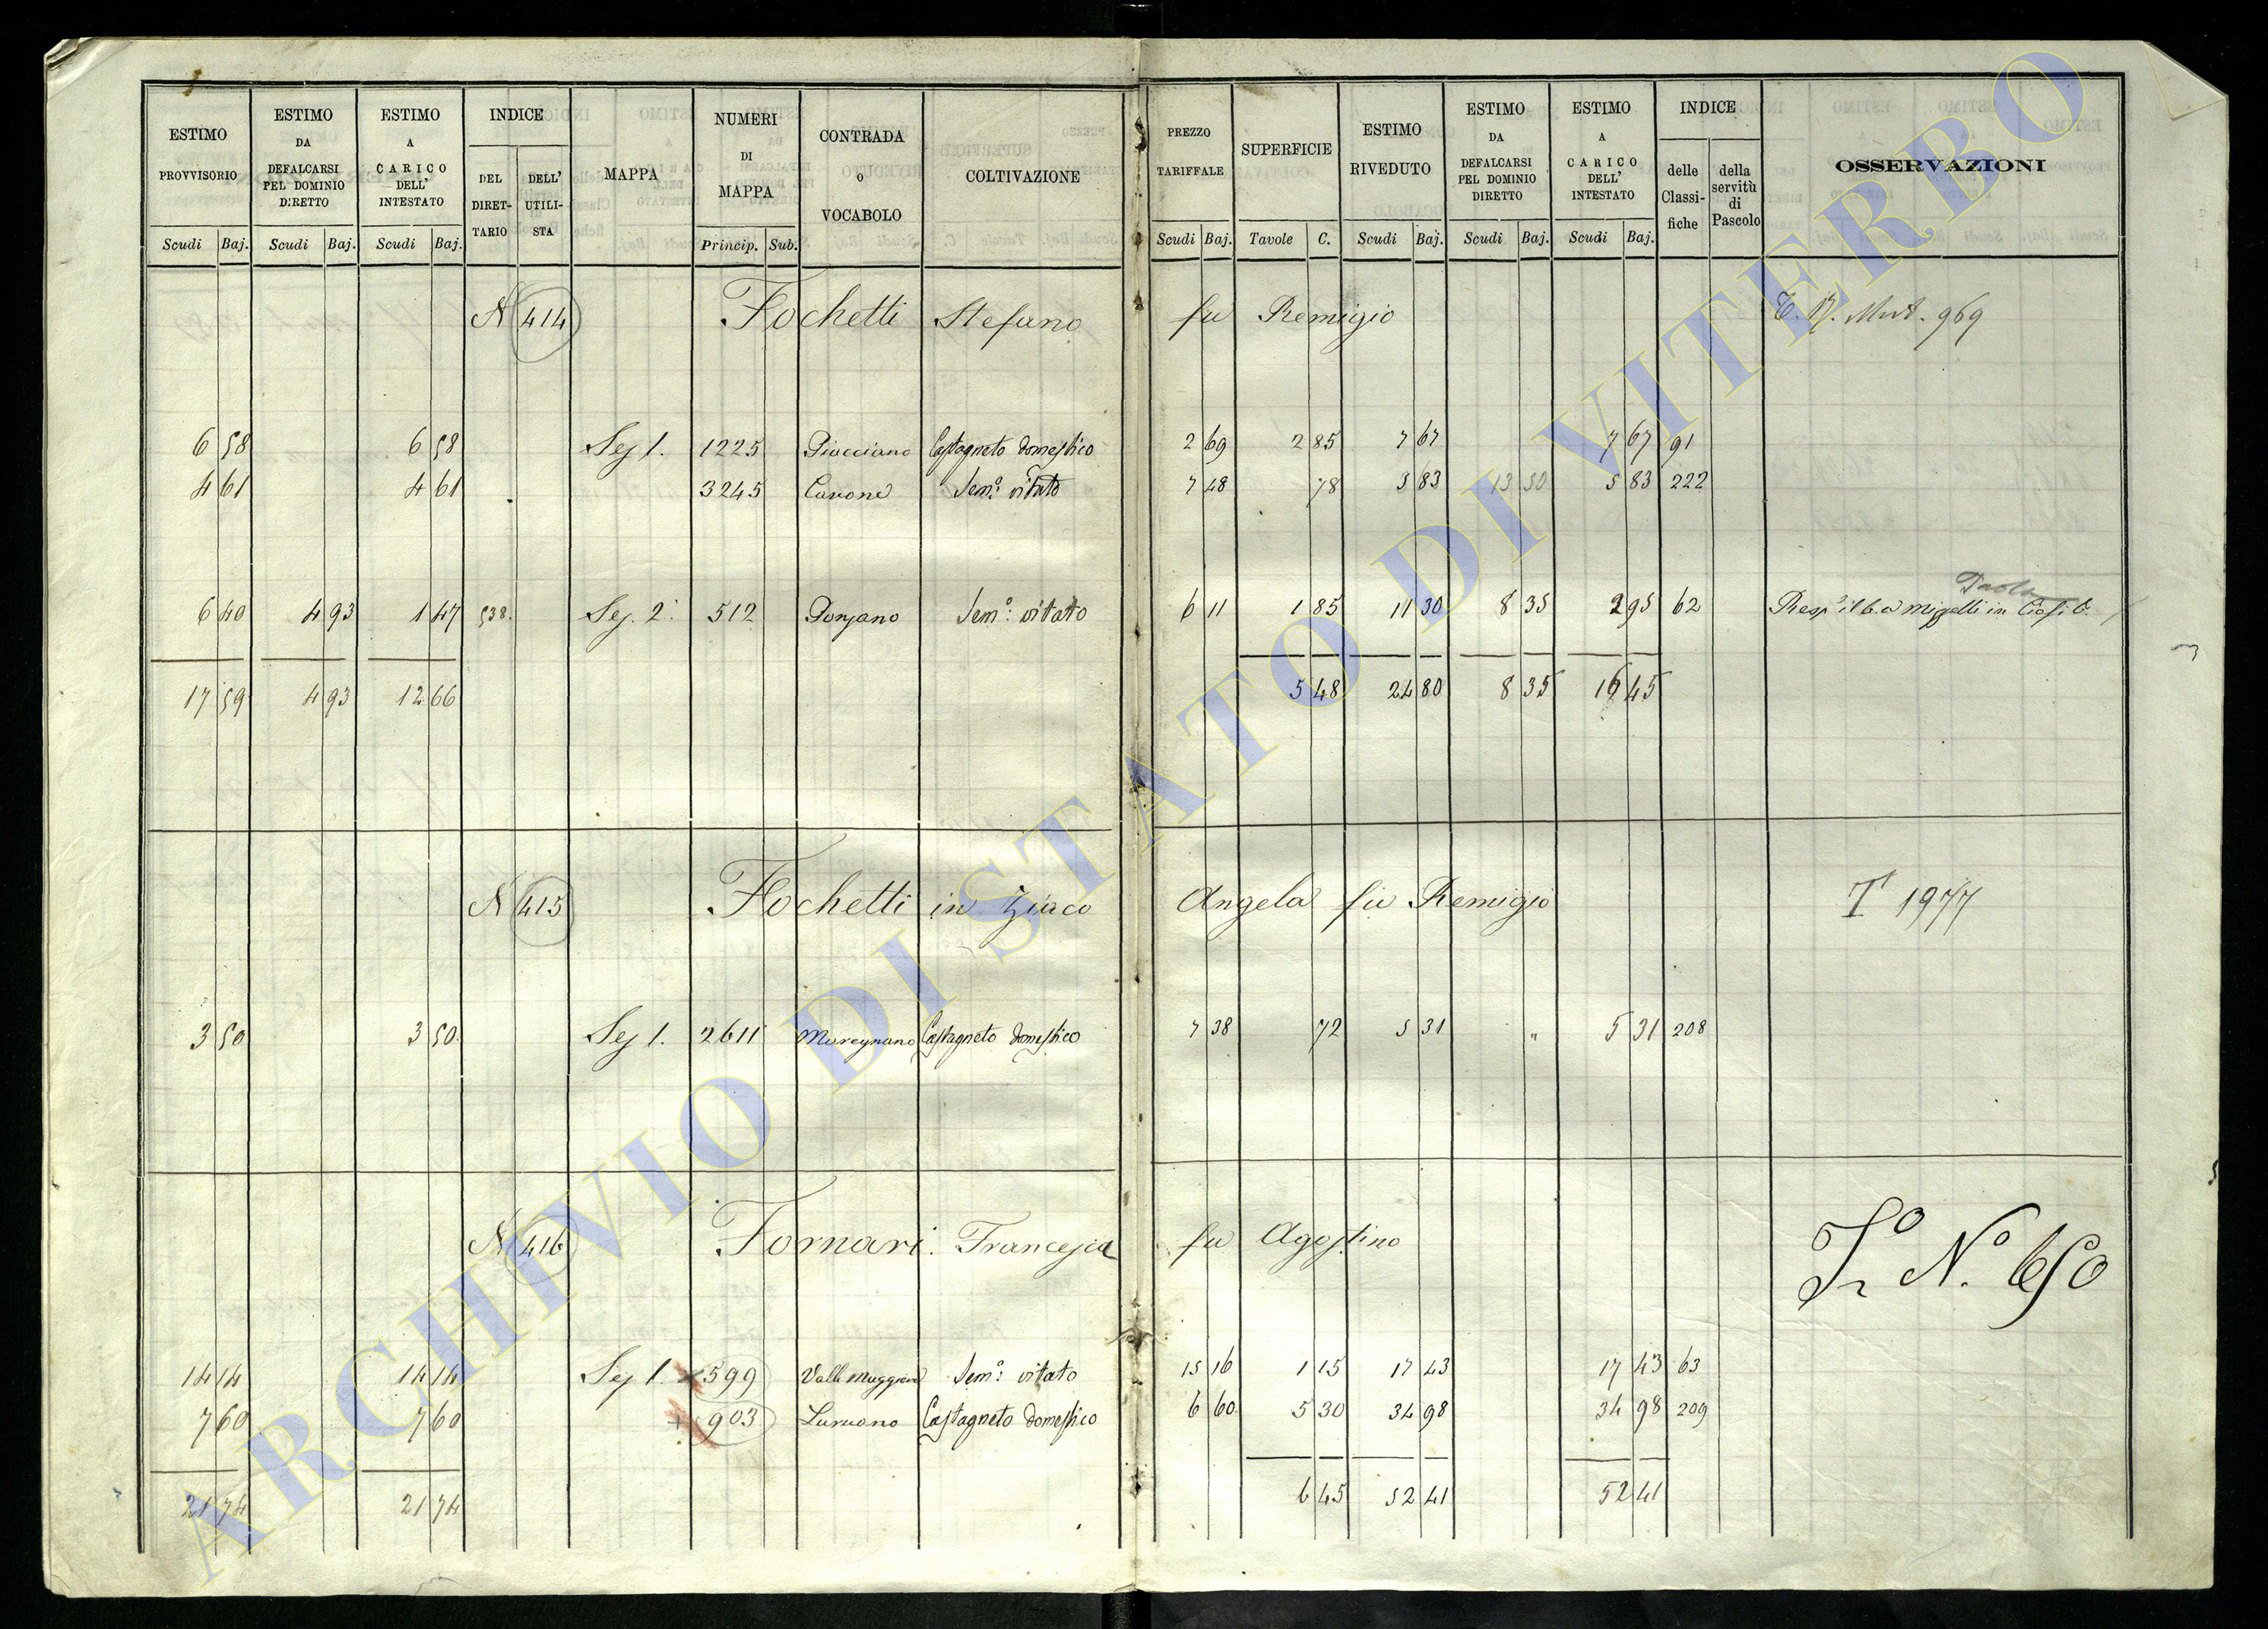 ESTIMO PROVVISORIO Scudi Baj.
ESTIMO DA DEFALCARSI PEL DOMINIO DIRETTO Scudi Baj.
ESTIMO A CARICO DELL' INTESTATO Scudi Baj.
INDICE DEL DIRET-TARIO DELL' UTILI-STA
MAPPA
NUMERI DI MAPPA Princip. Sub.
CONTRADA O VOCABOLO
COLTIVAZIONE
PREZZO TARIFFALE Scudi Baj.
SUPERFICIE Tavole C.
ESTIMO RIVEDUTO Scudi Baj.
ESTIMO DA DEFALCARSI PEL DOMINIO DIRETTO Scudi Baj.
ESTIMO A CARICO DELL' INTESTATO Scudi Baj.
INDICE delle Classi-fiche della servitù di Pascolo
OSSERVAZIONI
N 414 Fochetti Stefano fu Remigio 969
6 58 6 58 Sez 1. 1225 Castagneto domestico 2 69 2 85 7 67 7 67 91
4 61 4 61 3245 Cavone Sem.o vitato 7 48 78 5 83 13 50 5 83 222
6 40 4 93 1 47 538. Sez. 2.a 512 Ponzano Sem.o: vitato 6 11 1 85 11 30 8 35 2 95 62
17 59 4 93 12 66 5 48 24 80 8 35 16 45
N 415 Fochetti in Ziaco Angela fu Remigio T 1977
3 50 3 50 Sez 1. 2611 Castagneto domestico 7 38 72 5 31 " 5 31 208
N 416 Fornari Francesca fu Agostino N.o 650
14 14 14 14 Sez 1. 599 Valle Maggiore Sem.o: vitato 15 16 1 15 17 43 17 43 63
7 60 7 60 903 Castagneto domestico 6 60 5 30 34 98 34 98 209
21 74 21 74 6 45 52 41 52 41
ARCHIVIO DI STATO DI VITERBO